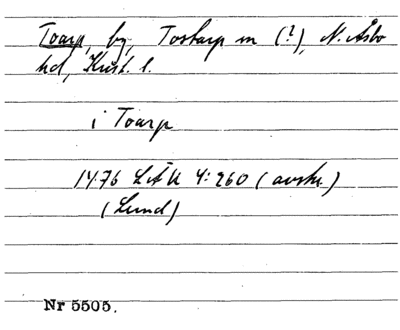 Toarp, by, Tostarp sn (?), N. Åsbo
hd, Krist. l.
i Toarp
1476 LÄU 4:260 (avskr.)
(Lund)
Nr 5505.